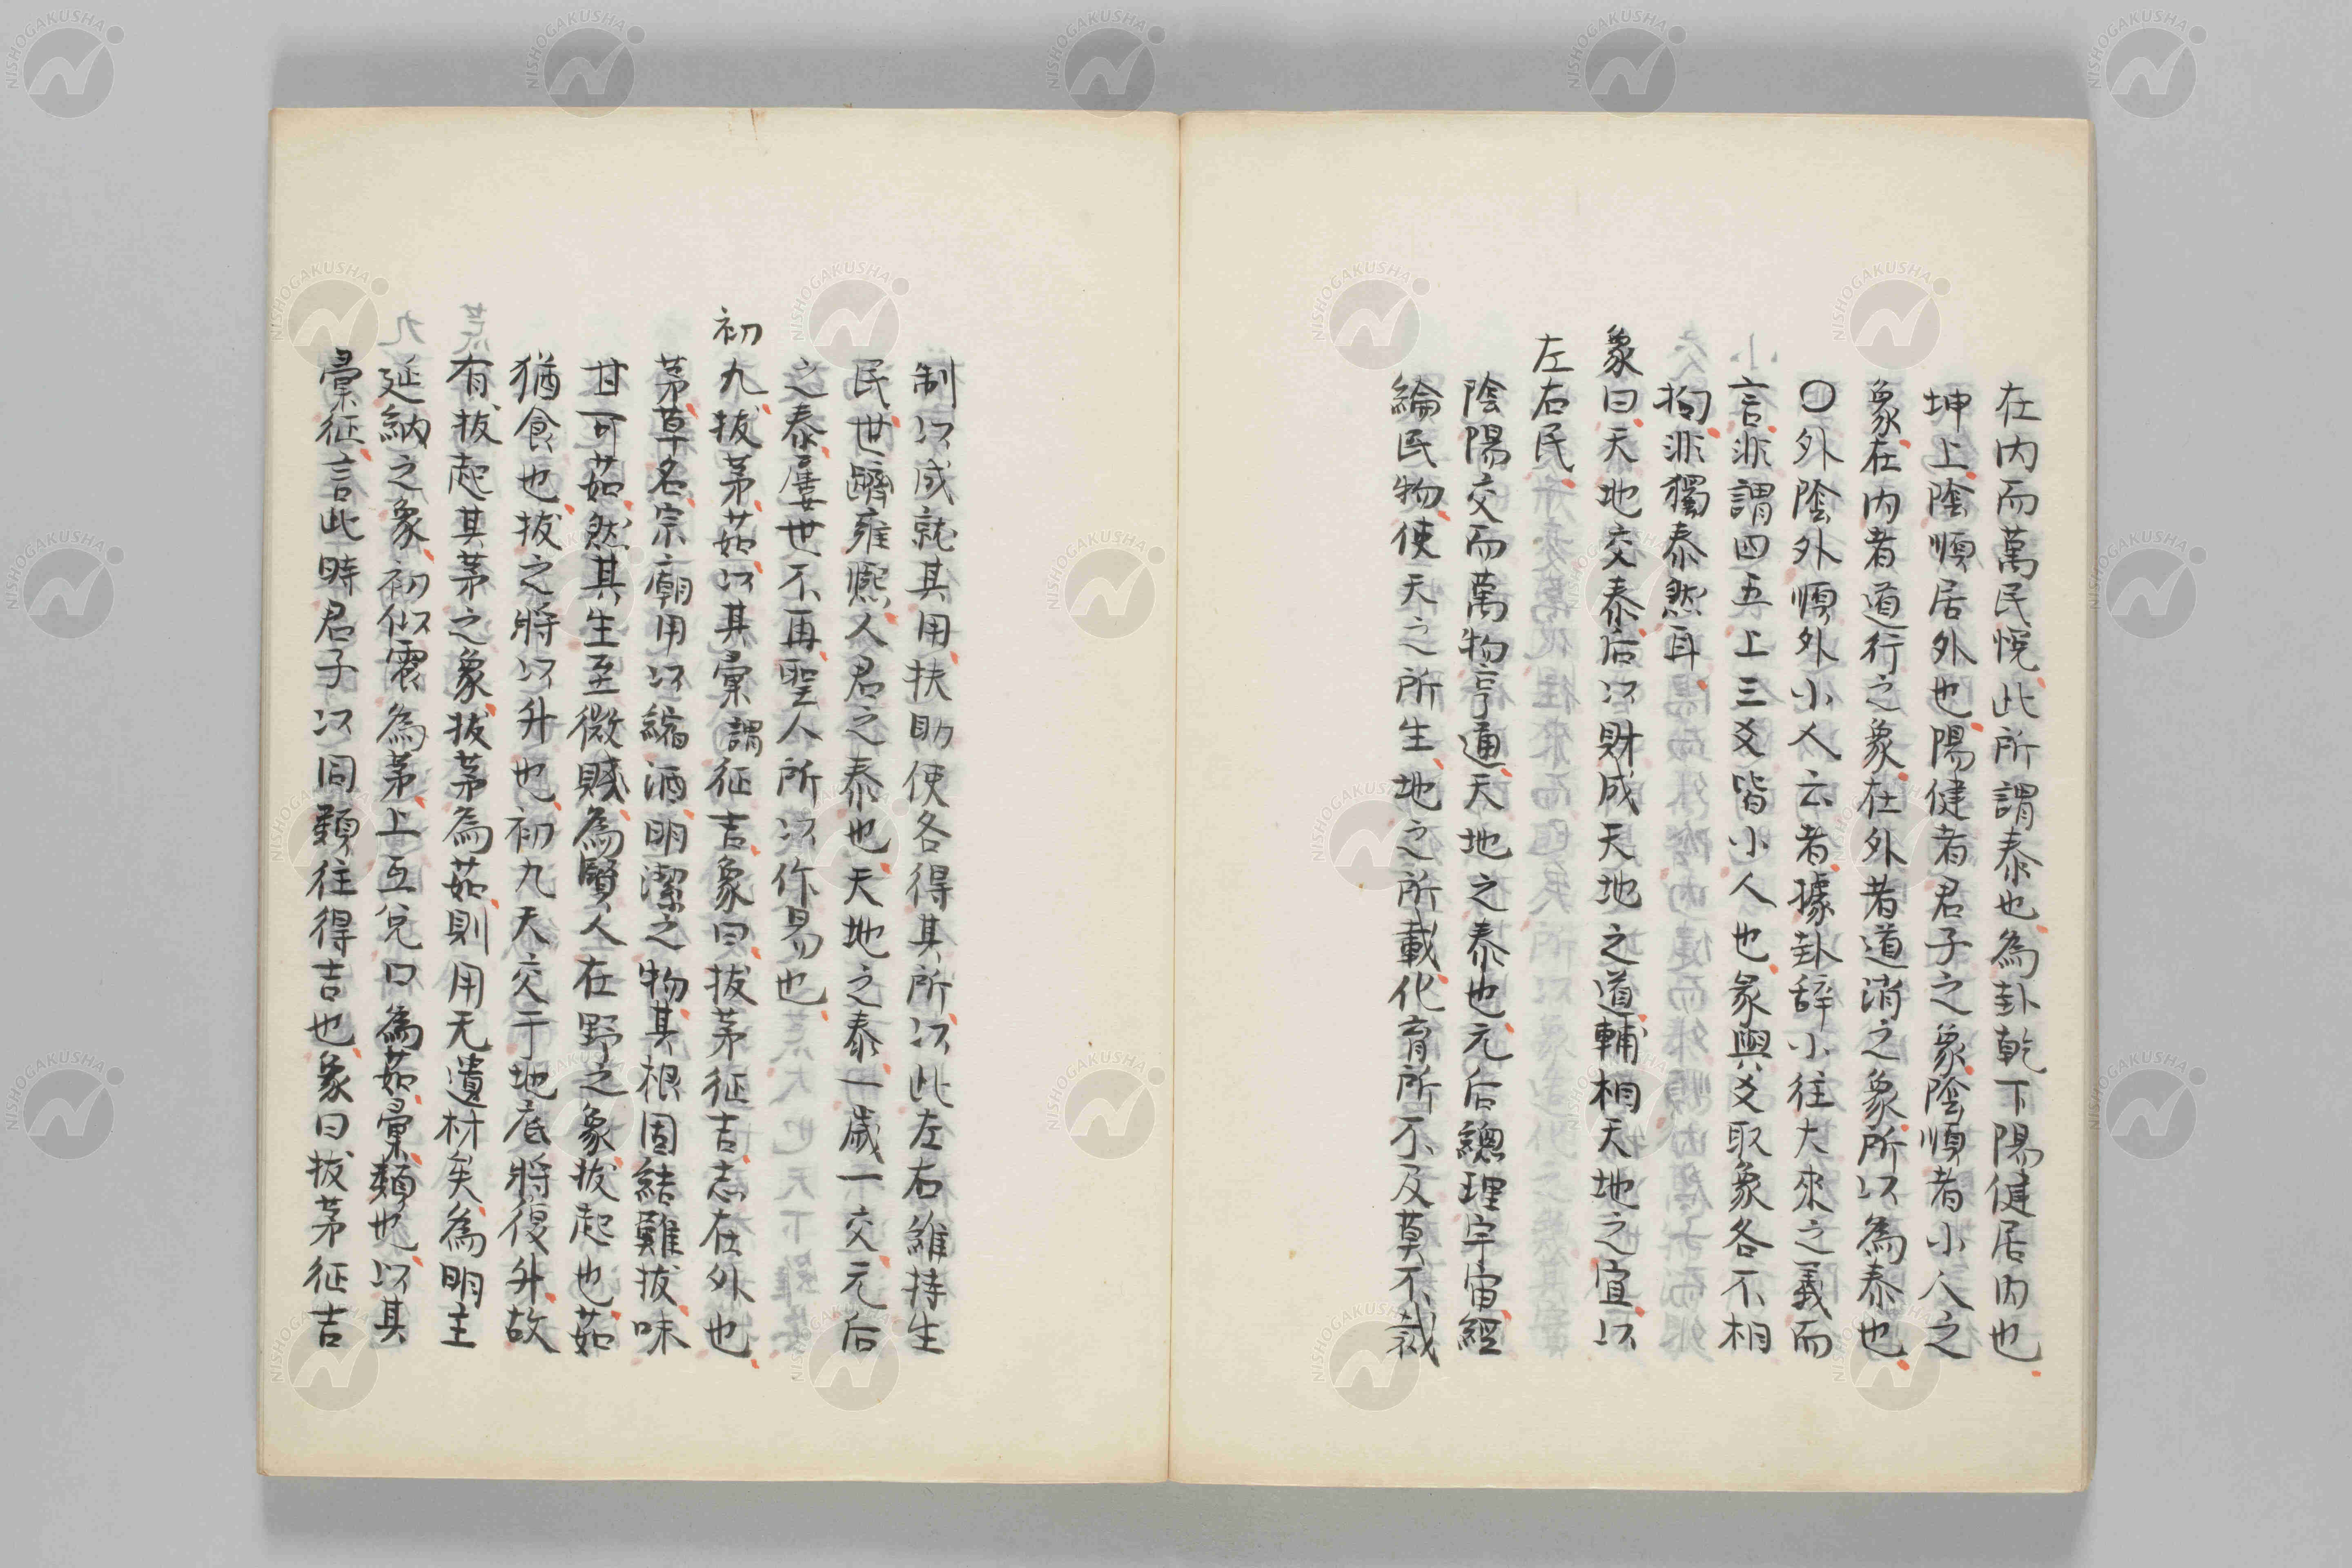 在内而萬民悅此所謂泰也為卦乾下陽健居内也
坤上陰順居外也陽健者君子之象陰順者小人之
象在内者道行之象在外者道消之象所以為泰也
〇外陰外順外小人云者據卦辞小往大來之義而
言非謂四五上三爻皆小人也彖與爻取象各不相
拘非獨泰然耳
象曰天地交泰后以財成天地之道輔相天地之宜以
左右民
陰陽交而萬物亨通天地之泰也元后總理宇宙經
綸民物使天之所生地之所載化育所不及莫不裁
制以成就其用扶助使各得其所以此左右維持生
民世躋雍熈人君之泰也天地之泰一歳一交元后
之泰屢世不再聖人所以作易也
初九拔茅茹以其彙謂征吉象曰拔茅征吉志在外也
茅草名宗廟用以縮酒明潔之物其根固結難拔味
甘可茹然其生至微賤為賢人在野之象拔起也茹
猶食也拔之將以升也初九天交于地底將復升故
有拔起其茅之象拔茅為茹則用无遺材矣為明主
延納之象初似震為茅上互兌口為茹彙類也以其
彙征言此時君子以同類往得吉也象曰拔茅征吉
NISHOGAKUSHA